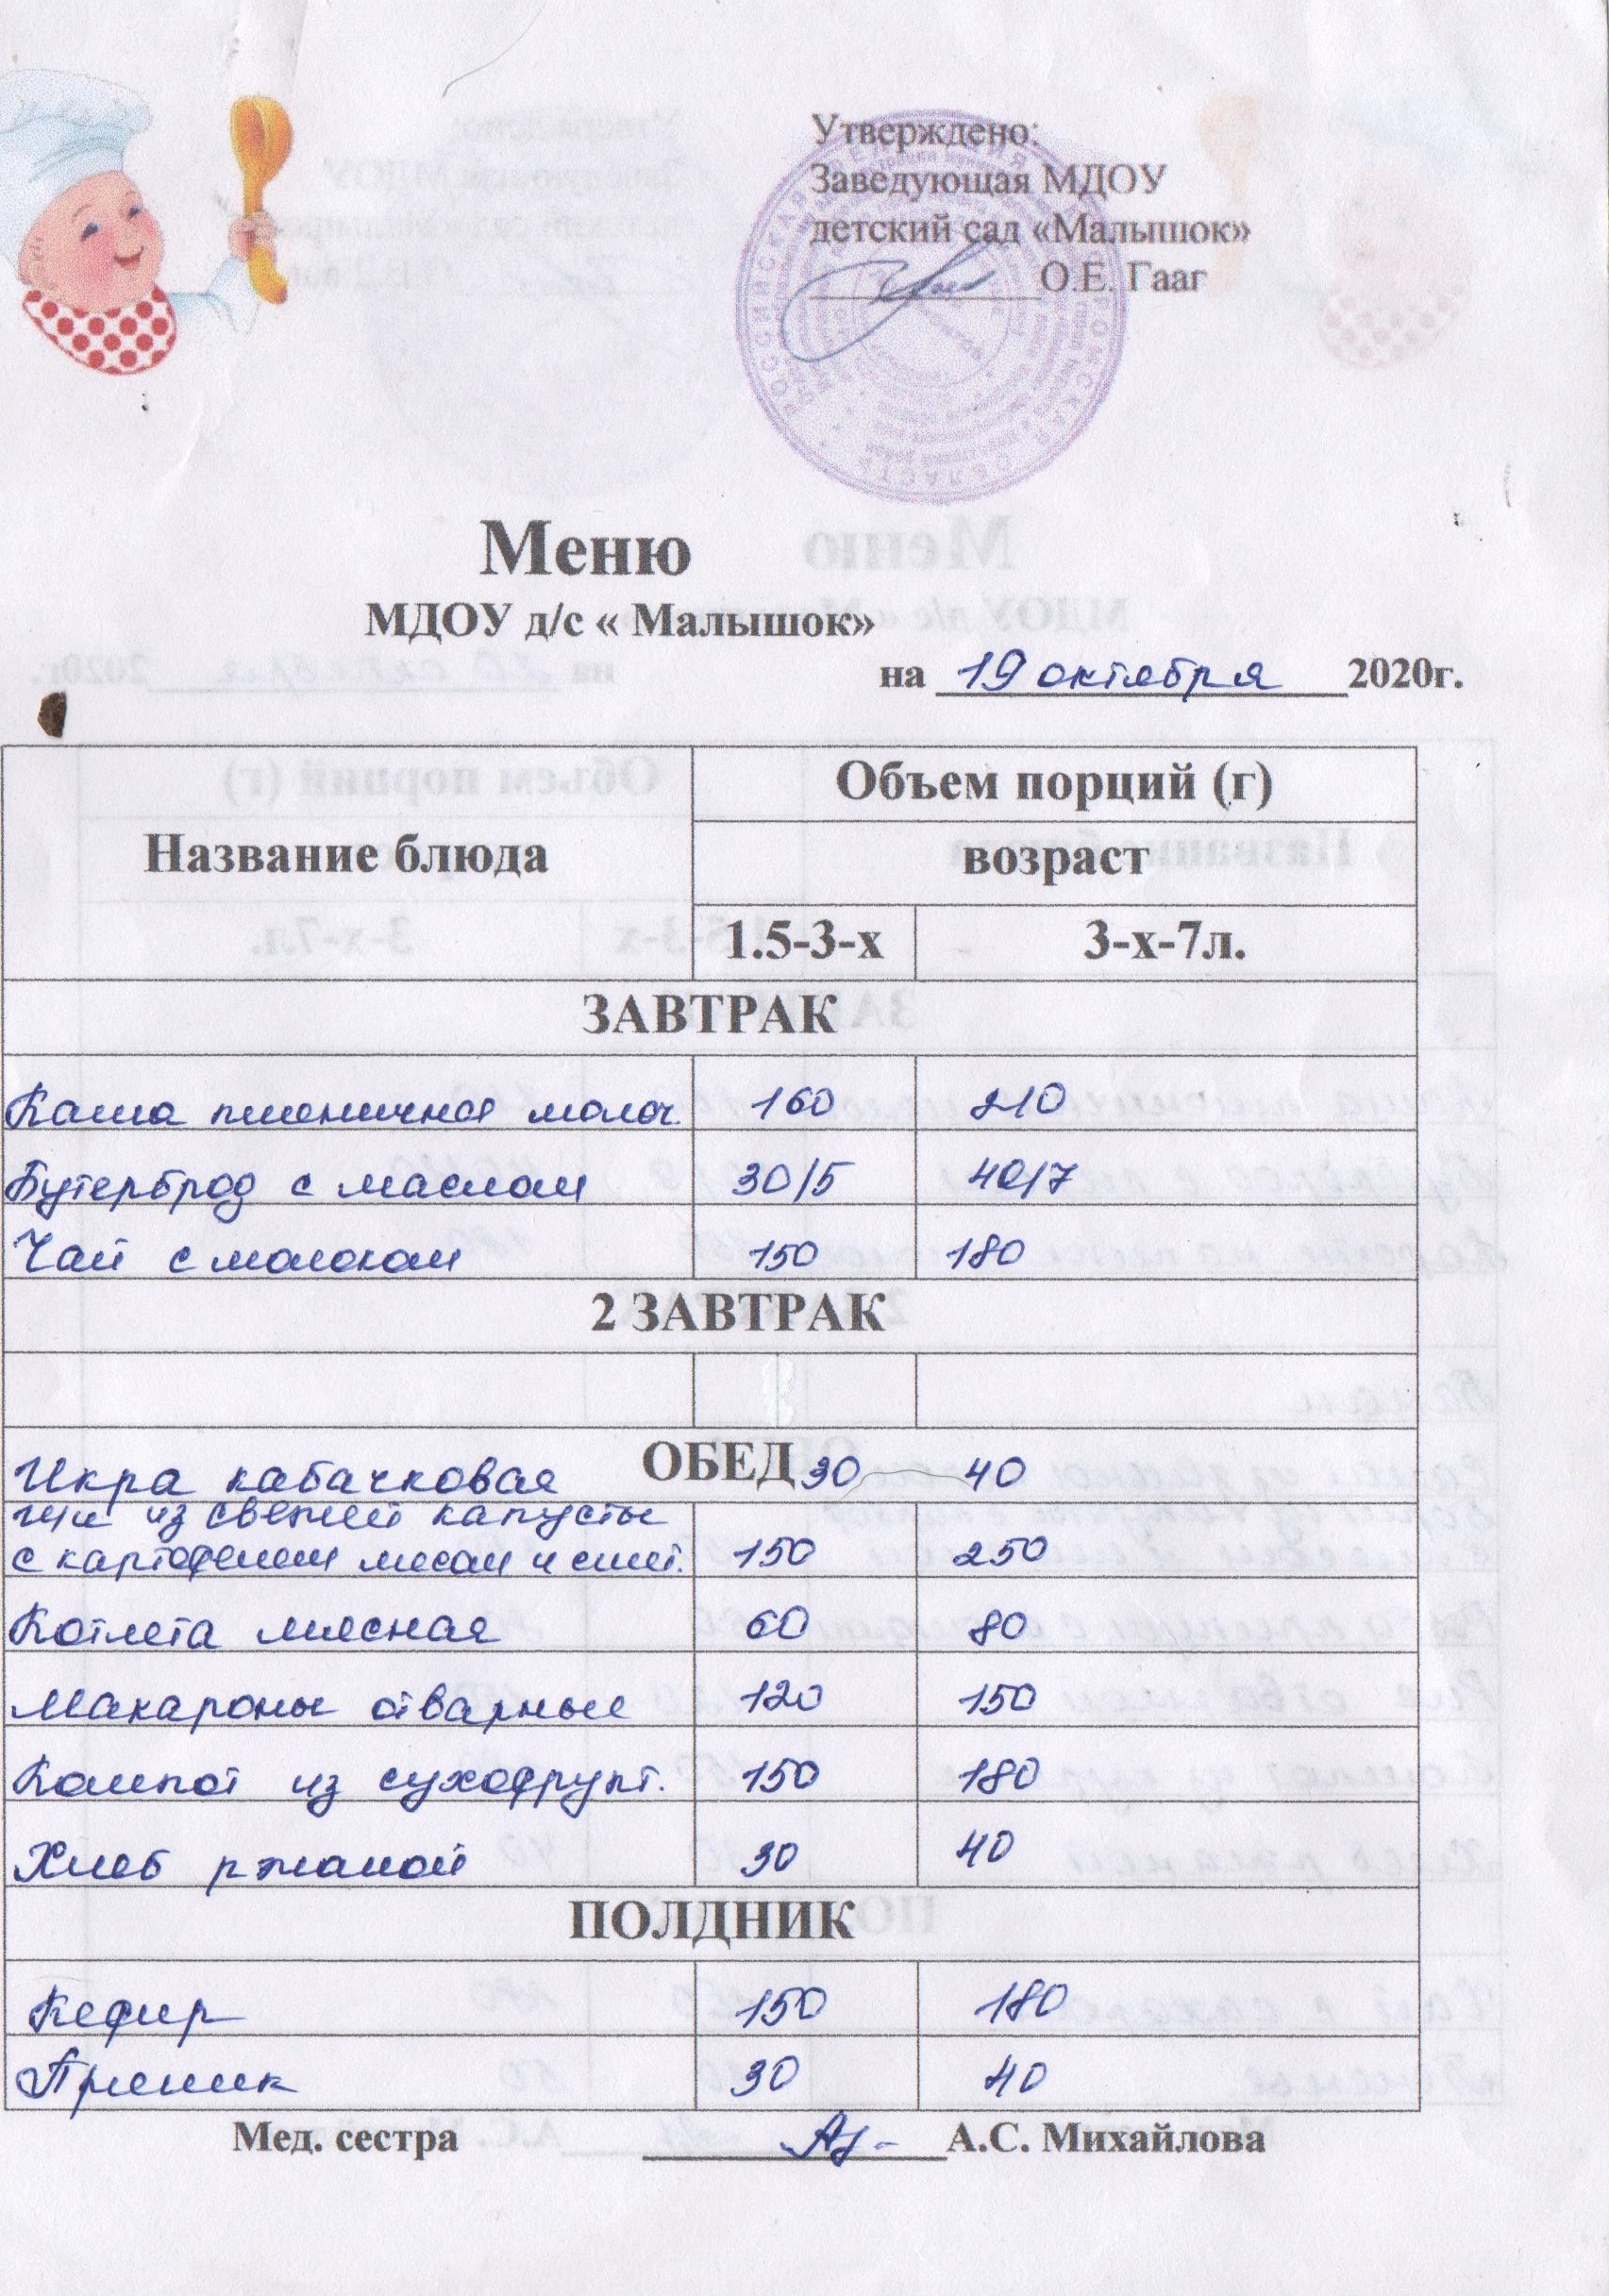 Утверждено:
Заведующая МДОУ
детский сад «Малышок»
О.Е. Гааг
РОССИЙСКАЯ ФЕДЕРАЦИЯ ТОМСКАЯ ОБЛАСТЬ
Меню
МДОУ д/с « Малышок»
на 19 октября 2020г.
Название блюда
Объем порций (г)
возраст
1.5-3-х 3-х-7л.
ЗАВТРАК
Каша пшеничная молоч. 160 210
Бутерброд с маслом 30/5 40/7
Чай с молоком 150 180
2 ЗАВТРАК
ОБЕД
Икра кабачковая 30 40
щи из свежей капусты
с картофелем мясом и смет. 150 250
Котлета мясная 60 80
Макароны отварные 120 150
Компот из сухофрукт. 150 180
Хлеб ржаной 30 40
ПОЛДНИК
Кефир 150 180
Пряник 30 40
Мед. сестра А.С. Михайлова